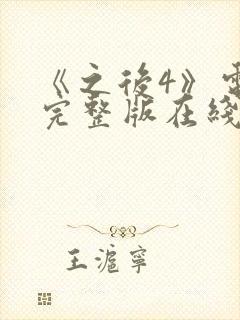 《之後4》電
完整版在綫
王滬寧